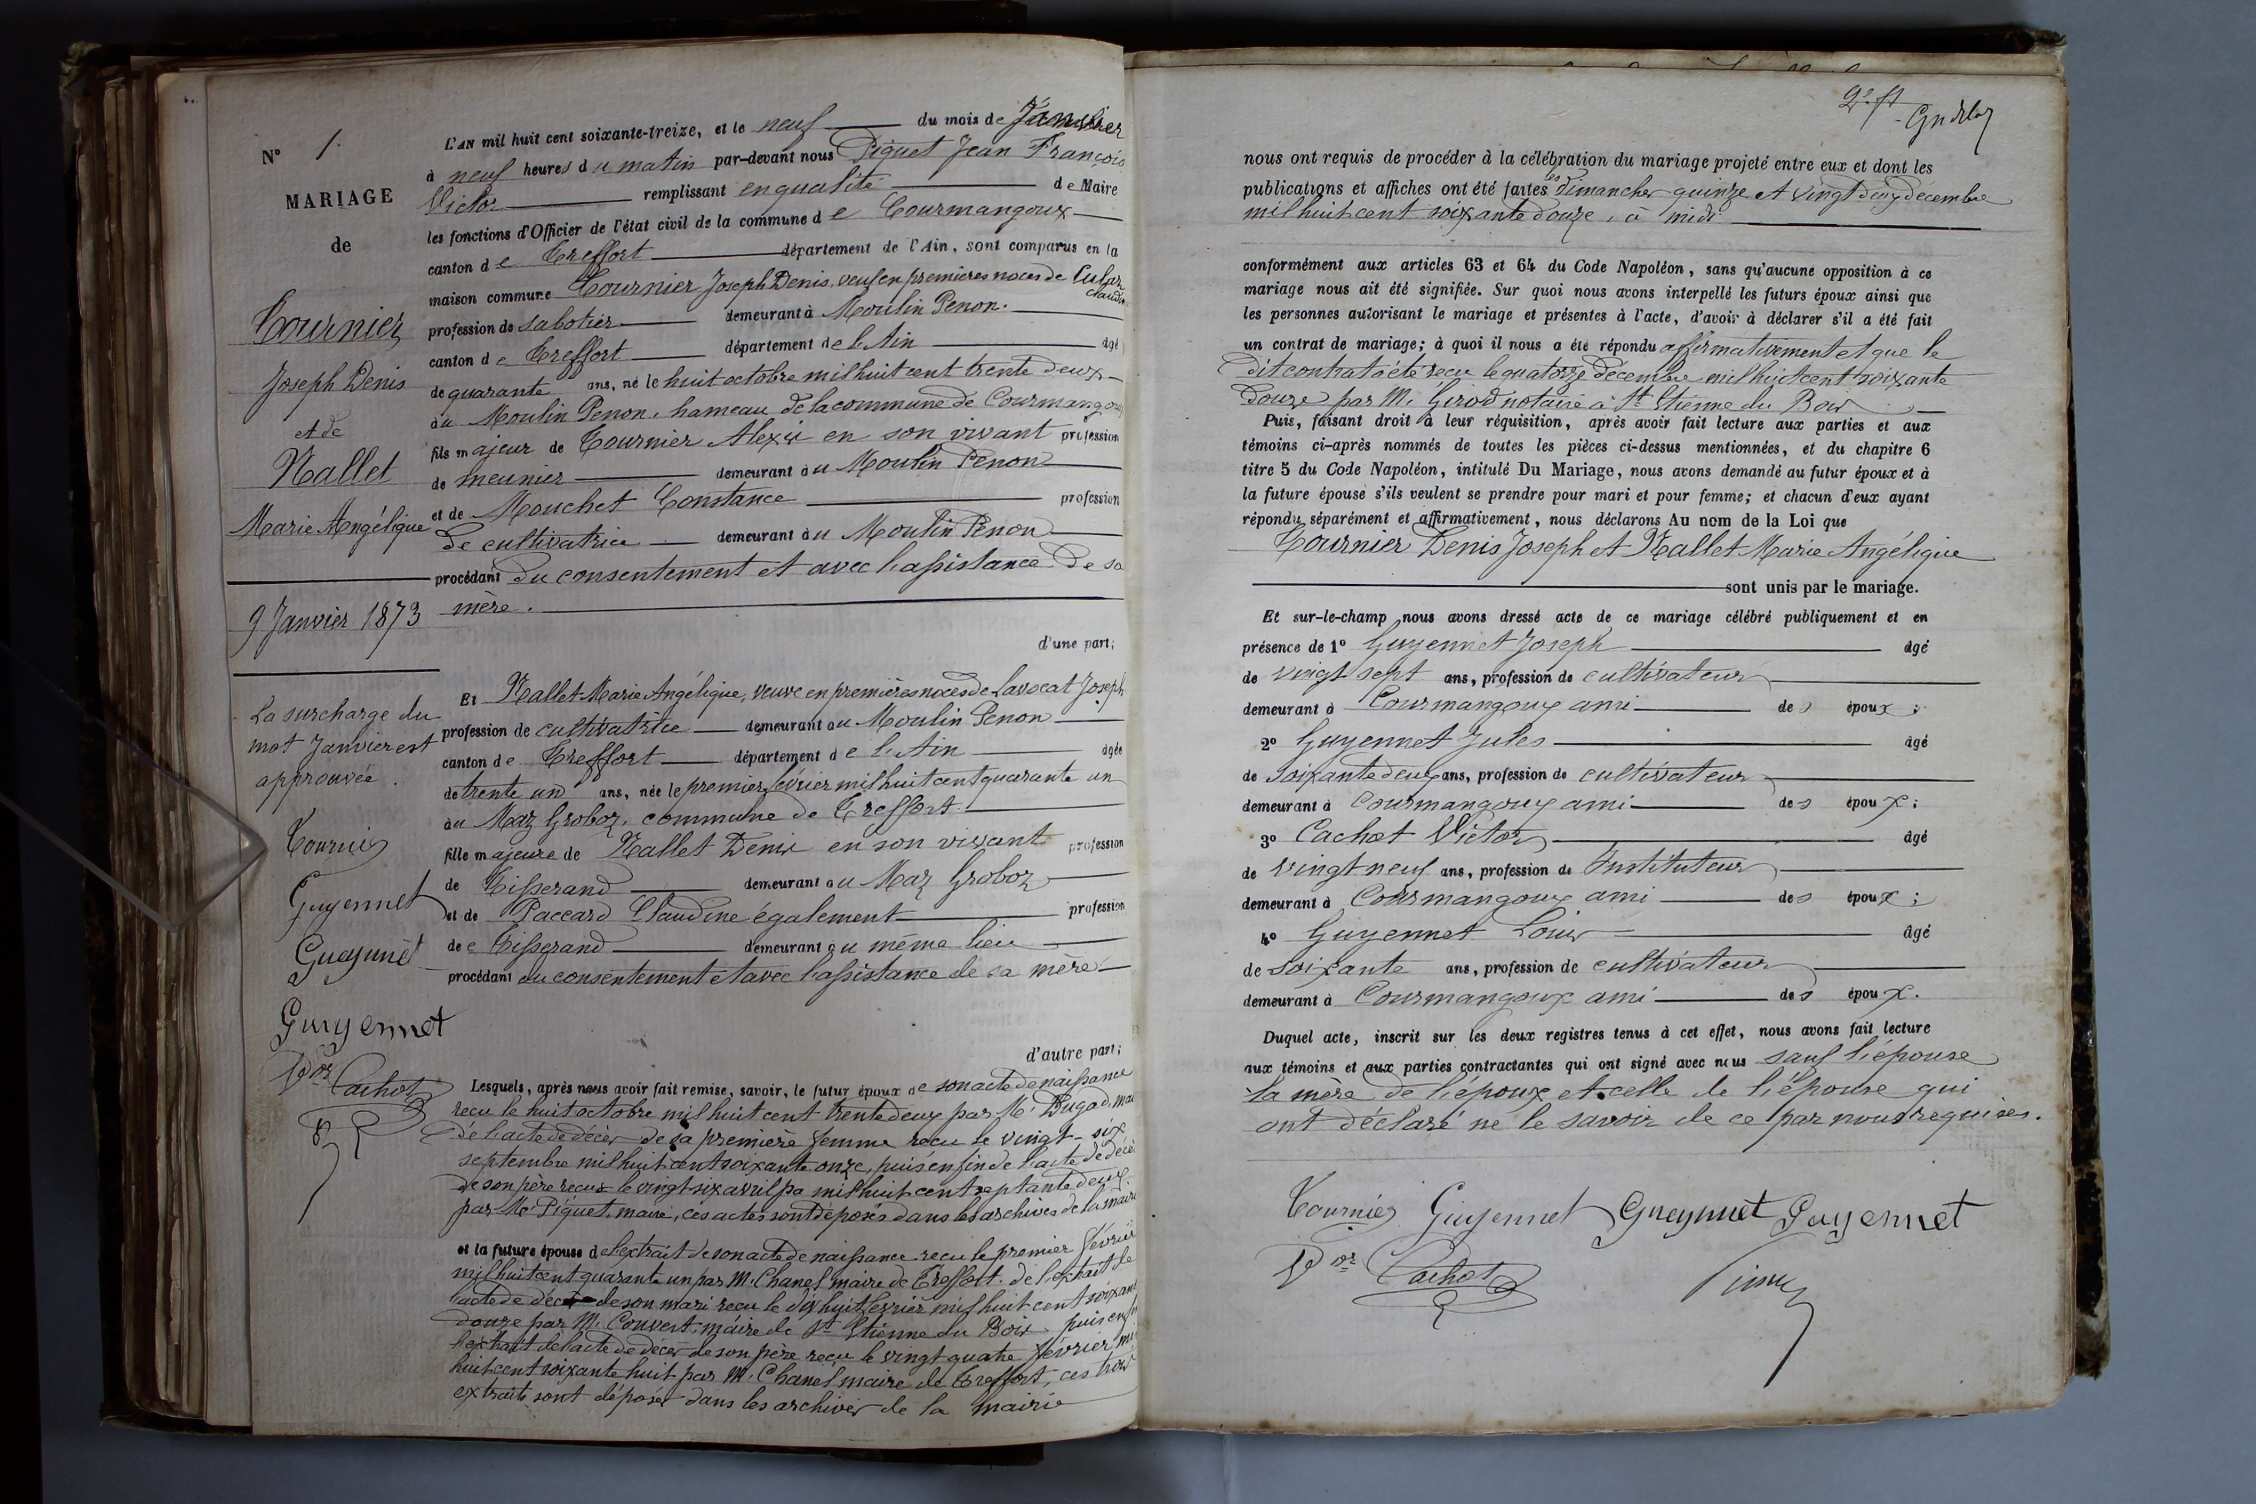 N° 1.
MARIAGE
de
Tournier
Joseph Denis
et de
Nallet
Marie Angélique
9 Janvier 1873
La surcharge du
mot Janvier est
approuvée.
Tournier
Guyennet
Gueyunet
Guyennet
Vor Cachot
L'AN mil huit cent soixante-treize, et le neuf du mois de Janvier
à neuf heures du matin par-devant nous Piquet Jean François
Victor remplissant en qualité de Maire
les fonctions d'Officier de l'état civil de la commune de Courmangoux
canton de Treffort département de l'Ain, sont comparus en la
maison commune Tournier Joseph Denis, veuf en premières noces de
profession de sabotier demeurant à Moulin Penon.
canton de Treffort département de l'Ain âgé
de quarante ans, né le huit octobre mil huit cent trente deux
au Moulin Penon, hameau de la commune de Courmangoux
fils majeur de Tournier Alexis en son vivant profession
de meunier demeurant au Moulin Penon
et de Mouchet Constance profession
de cultivatrice demeurant au Moulin Penon
procédant du consentement et avec l'assistance de sa
mère.
d'une part;
Et Nallet Marie Angélique, veuve en premières noces de Lavocat Joseph
profession de cultivatrice demeurant au Moulin Penon
canton de Treffort département de l'Ain âgée
de trente un ans, née le premier février mil huit cent quarante un
au Maz Groboz, commune de Treffort
fille majeure de Nallet Denis en son vivant profession
de Tisserand demeurant au Maz Groboz
et de Paccard Claudine également profession
de Tisserand demeurant au même lieu
procédant du consentement et avec l'assistance de sa mère
d'autre part;
Lesquels, après nous avoir fait remise, savoir, le futur époux de son acte de naissance
reçu le huit octobre mil huit cent trente deux par Mr Dugad, mai
de l'acte de décès de sa première femme reçu le vingt-six
septembre mil huit cent soixante onze, puis enfin de l'acte de décès
de son père reçus le vingt six avril pa mil huit cent septante deux
par Mr Piquet, maire, ces actes sont déposés dans les archives de la mairie
et la future épouse de l'extrait de son acte de naissance reçu le premier février
mil huit cent quarante un par M. Chanel maire de Treffort. de l'extrait de
l'acte de décès de son mari reçu le dix huit février mil huit cent soixante
douze par M. Convert, maire de St Etienne du Bois puis enfin
l'extrait de l'acte de décès de son père reçu le vingt quatre février mil
huit cent soixante huit par M. Chanel maire de Treffort, ces trois
extraits sont déposés dans les archives de la mairie
nous ont requis de procéder à la célébration du mariage projeté entre eux et dont les
publications et affiches ont été faites les Dimanches quinze et vingt deux décembre
mil huit cent soixante douze, à midi
conformément aux articles 63 et 64 du Code Napoléon, sans qu'aucune opposition à ce
mariage nous ait été signifiée. Sur quoi nous avons interpellé les futurs époux ainsi que
les personnes autorisant le mariage et présentes à l'acte, d'avoir à déclarer s'il a été fait
un contrat de mariage; à quoi il nous a été répondu affirmativement et que le
dit contrat a été reçu le quatorze décembre mil huit cent soixante
douze par M. Girod notaire à St Etienne du Bois
Puis, faisant droit à leur réquisition, après avoir fait lecture aux parties et aux
témoins ci-après nommés de toutes les pièces ci-dessus mentionnées, et du chapitre 6
titre 5 du Code Napoléon, intitulé Du Mariage, nous avons demandé au futur époux et à
la future épouse s'ils veulent se prendre pour mari et pour femme; et chacun d'eux ayant
répondu séparément et affirmativement, nous déclarons Au nom de la Loi que
Tournier Denis Joseph et Nallet Marie Angélique
sont unis par le mariage.
Et sur-le-champ nous avons dressé acte de ce mariage célébré publiquement et en
présence de 1° Guyennet Joseph âgé
de vingt sept ans, profession de cultivateur
demeurant à Courmangoux ami des époux;
2° Guyennet Jules âgé
de soixante deux ans, profession de cultivateur
demeurant à Courmangoux ami des époux;
3° Cachot Victor âgé
de vingt neuf ans, profession de Instituteur
demeurant à Courmangoux ami des époux;
4° Guyennet Louis âgé
de soixante ans, profession de cultivateur
demeurant à Courmangoux ami des époux.
Duquel acte, inscrit sur les deux registres tenus à cet effet, nous avons fait lecture
aux témoins et aux parties contractantes qui ont signé avec nous sauf l'épouse
la mère de l'époux et celle de l'épouse qui
ont déclaré ne le savoir de ce par nous requises.
Tournier Guyennet Gueynnet Guyennet
Vor Cachot